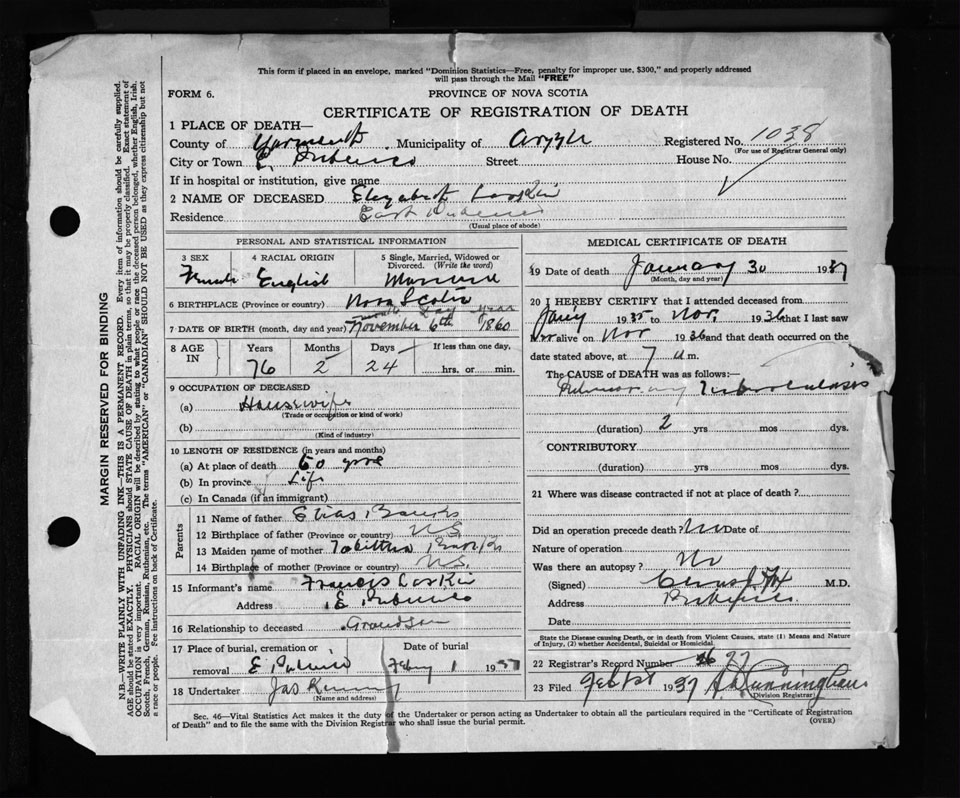 This form if placed in an envelope, marked "Dominion Statistics—Free, penalty for improper use, $300," and properly addressed
will pass through the Mail "FREE"
FORM 6. PROVINCE OF NOVA SCOTIA
CERTIFICATE OF REGISTRATION OF DEATH
1 PLACE OF DEATH—
County of Yarmouth Municipality of Argyle Registered No. 1038
(For use of Registrar General only)
City or Town E. Pubnico Street House No.
If in hospital or institution, give name
2 NAME OF DECEASED Elizabeth Larkin
Residence East Pubnico
(Usual place of abode)
PERSONAL AND STATISTICAL INFORMATION
3 SEX 4 RACIAL ORIGIN 5 Single, Married, Widowed or
Divorced. (Write the word)
Female English Married
6 BIRTHPLACE (Province or country) Nova Scotia
month Day year
7 DATE OF BIRTH (month, day and year) November 6th 1860
8 AGE IN Years Months Days If less than one day,
76 2 24 hrs. or min.
9 OCCUPATION OF DECEASED
(a) Housewife
(Trade or occupation or kind of work)
(b)
(Kind of industry)
10 LENGTH OF RESIDENCE (in years and months)
(a) At place of death 60 yrs
(b) In province Life
(c) In Canada (if an immigrant)
Parents
11 Name of father Elias
12 Birthplace of father (Province or country) N S
13 Maiden name of mother Tabitha
14 Birthplace of mother (Province or country) N.S.
15 Informant's name Francis Larkin
Address E. Pubnico
16 Relationship to deceased Grandson
17 Place of burial, cremation or Date of burial
removal E. Pubnico Feby 1 1937
18 Undertaker Jas
(Name and address)
MEDICAL CERTIFICATE OF DEATH
19 Date of death January 30 1937
(Month, day and year)
20 I HEREBY CERTIFY that I attended deceased from
Jany 1935 to Nov. 1936 that I last saw
her alive on Nov 1936 and that death occurred on the
date stated above, at 7 a.m.
The CAUSE OF DEATH was as follows:—
Pulmonary Tuberculosis
(duration) 2 yrs mos dys.
CONTRIBUTORY
(duration) yrs. mos. dys.
21 Where was disease contracted if not at place of death?
Did an operation precede death? No Date of
Nature of operation
Was there an autopsy? No
(Signed) M.D.
Address Pubnico
Date
State the Disease causing Death, or in death from Violent Causes, state (1) Means and Nature
of Injury, (2) whether Accidental, Suicidal or Homicidal.
22 Registrar's Record Number
23 Filed Feb 1st 1937 Cunningham
(Division Registrar)
Sec. 46—Vital Statistics Act makes it the duty of the Undertaker or person acting as Undertaker to obtain all the particulars required in the "Certificate of Registration
of Death" and to file the same with the Division Registrar who shall issue the burial permit. (OVER)
MARGIN RESERVED FOR BINDING
N.B.—WRITE PLAINLY WITH UNFADING INK—THIS IS A PERMANENT RECORD. Every item of information should be carefully supplied.
AGE should be stated EXACTLY. PHYSICIANS should STATE CAUSE OF DEATH in plain terms, so that it may be properly classified. Exact statement of
OCCUPATION is very important. RACIAL ORIGIN will be described by stating to what people or race the deceased person belonged, whether English, Irish,
Scotch, French, German, Russian, Ruthenian, etc. The terms "AMERICAN" or "CANADIAN" SHOULD NOT BE USED as they express citizenship but not
a race or people. Fee instructions on back of Certificate.